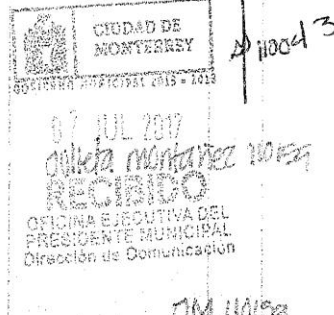 CIUDAD DE
MONTERREY
GOBIERNO MUNICIPAL 2015 - 2018
07 JUL 2017
Julieta montañez
RECIBIDO
OFICINA EJECUTIVA DEL
PRESIDENTE MUNICIPAL
Dirección de Comunicación